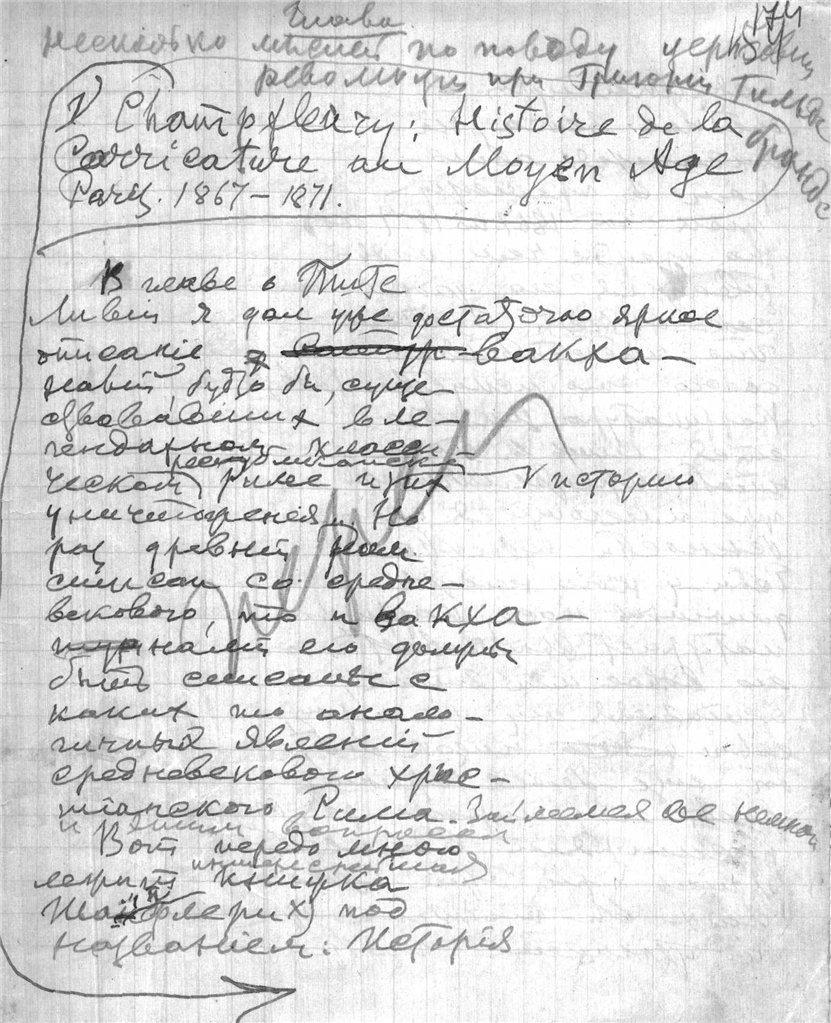 174
Глава
Несколько мыслей по поводу церковной
революции при Григории Гильде
бранде
1) Champfleury: Histoire de la
Carricature au Moyen Age
Париж. 1867–1871.
В главе о Тите
Ливии я дал уже достаточно яркое
описание вакха–
налий, будто бы, суще–
ствовавших в ле–
гендарном класси–
ческом республиканском Риме и их историю
уничтожения. Но
раз древний Рим
списан со средне–
векового, то и вакха–
налии его должны
быть списаны с
каких то анало–
гичных явлений
средневекового хрис–
тианского Рима. Займемся же немного
и этим вопросом
Вот передо мною
интереснейшая
лежит книжка
Шанфлери 1) под
названием: Исторія